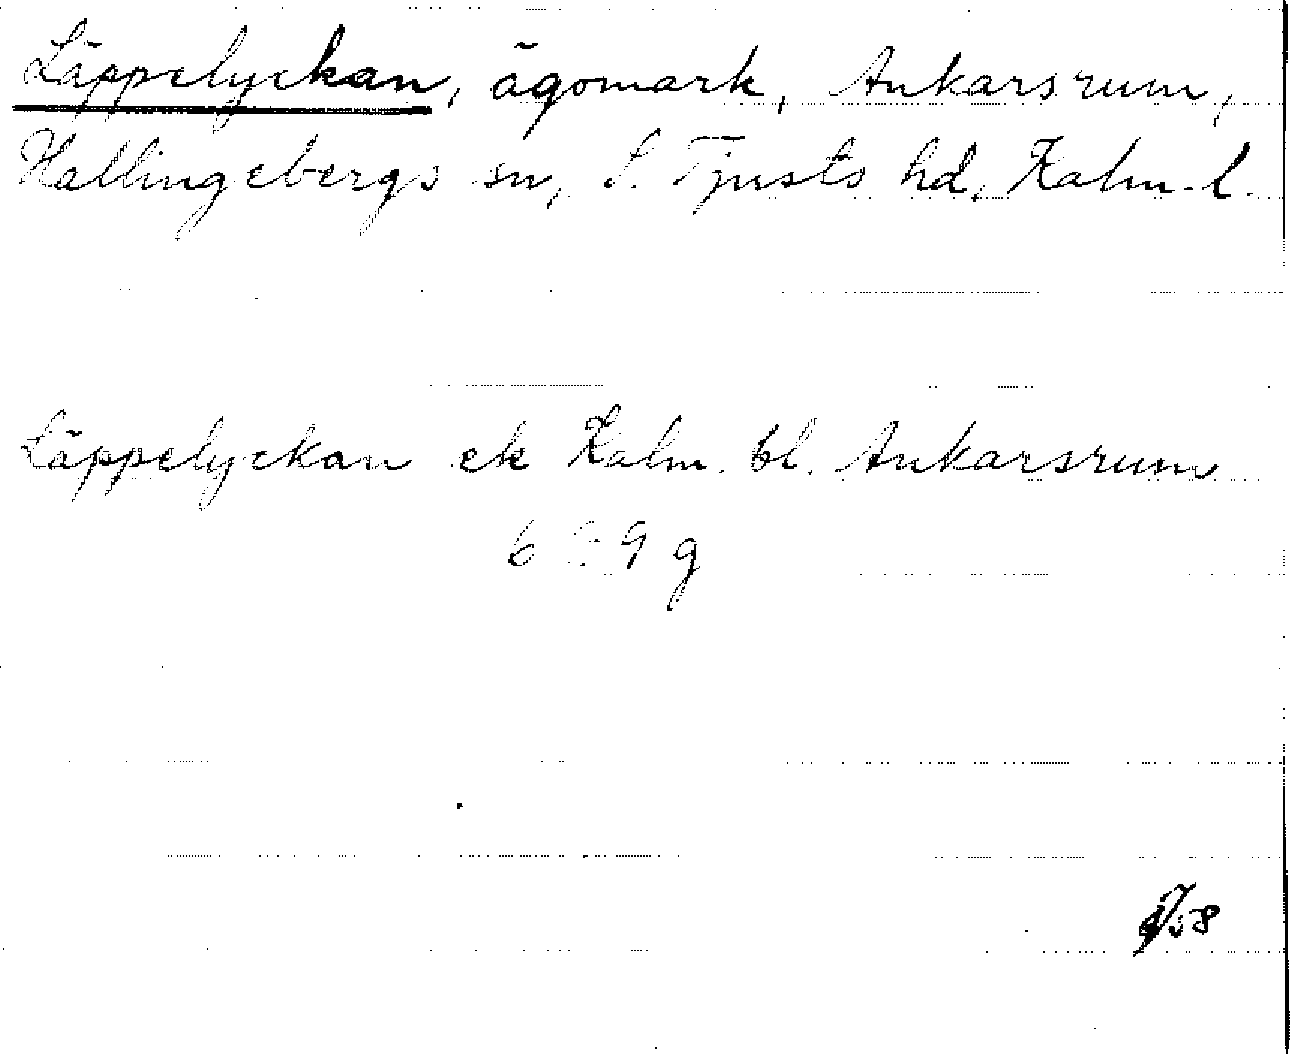 Läppelyckan, ägomark, Ankarsrum,
Hallingebergs sn, S. Tjusts hd, Kalm. l.
Läppelyckan ek Kalm. bl. Ankarsrum
6 9 g